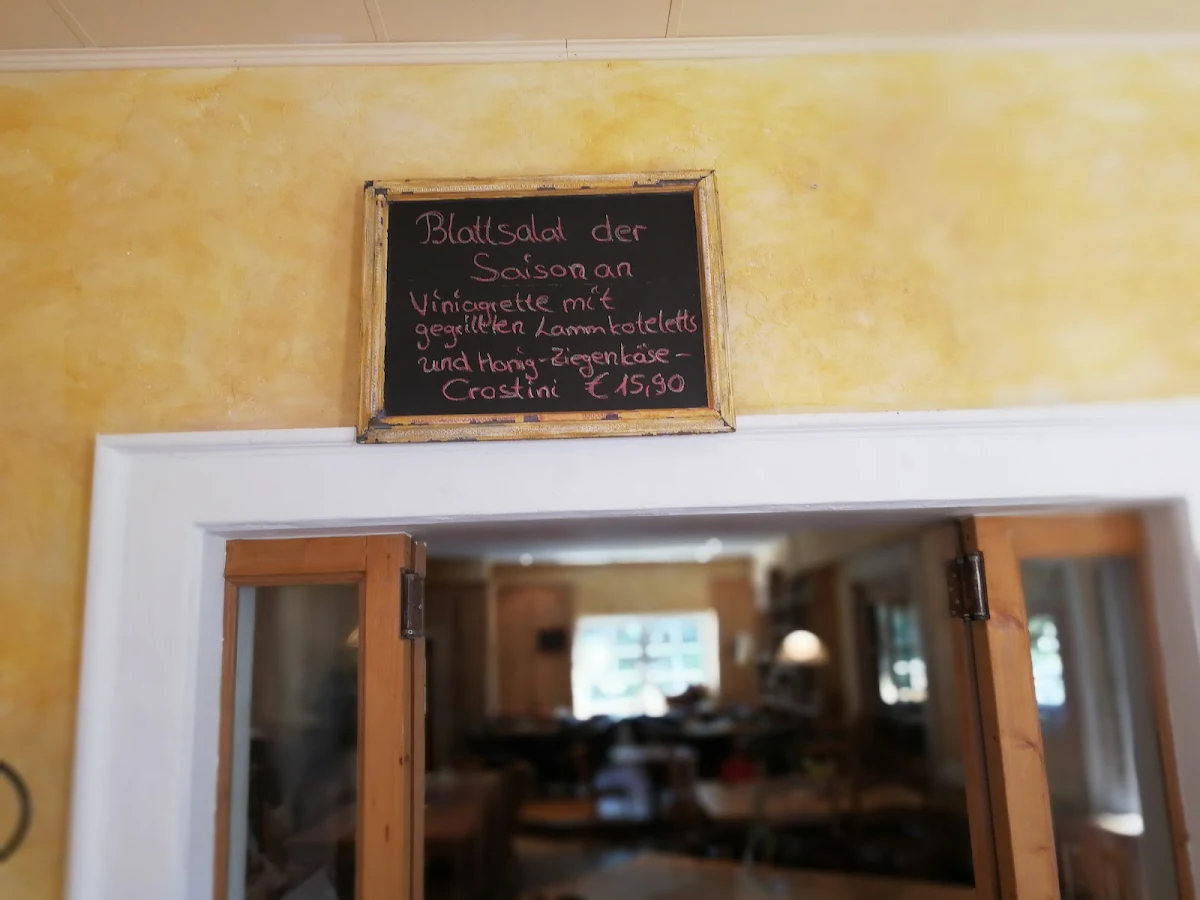 Blattsalat der
Saison an
Viniagrette mit
gegrillten Lammkoteletts
und Honig-Ziegenkäse-
Crostini € 15,90